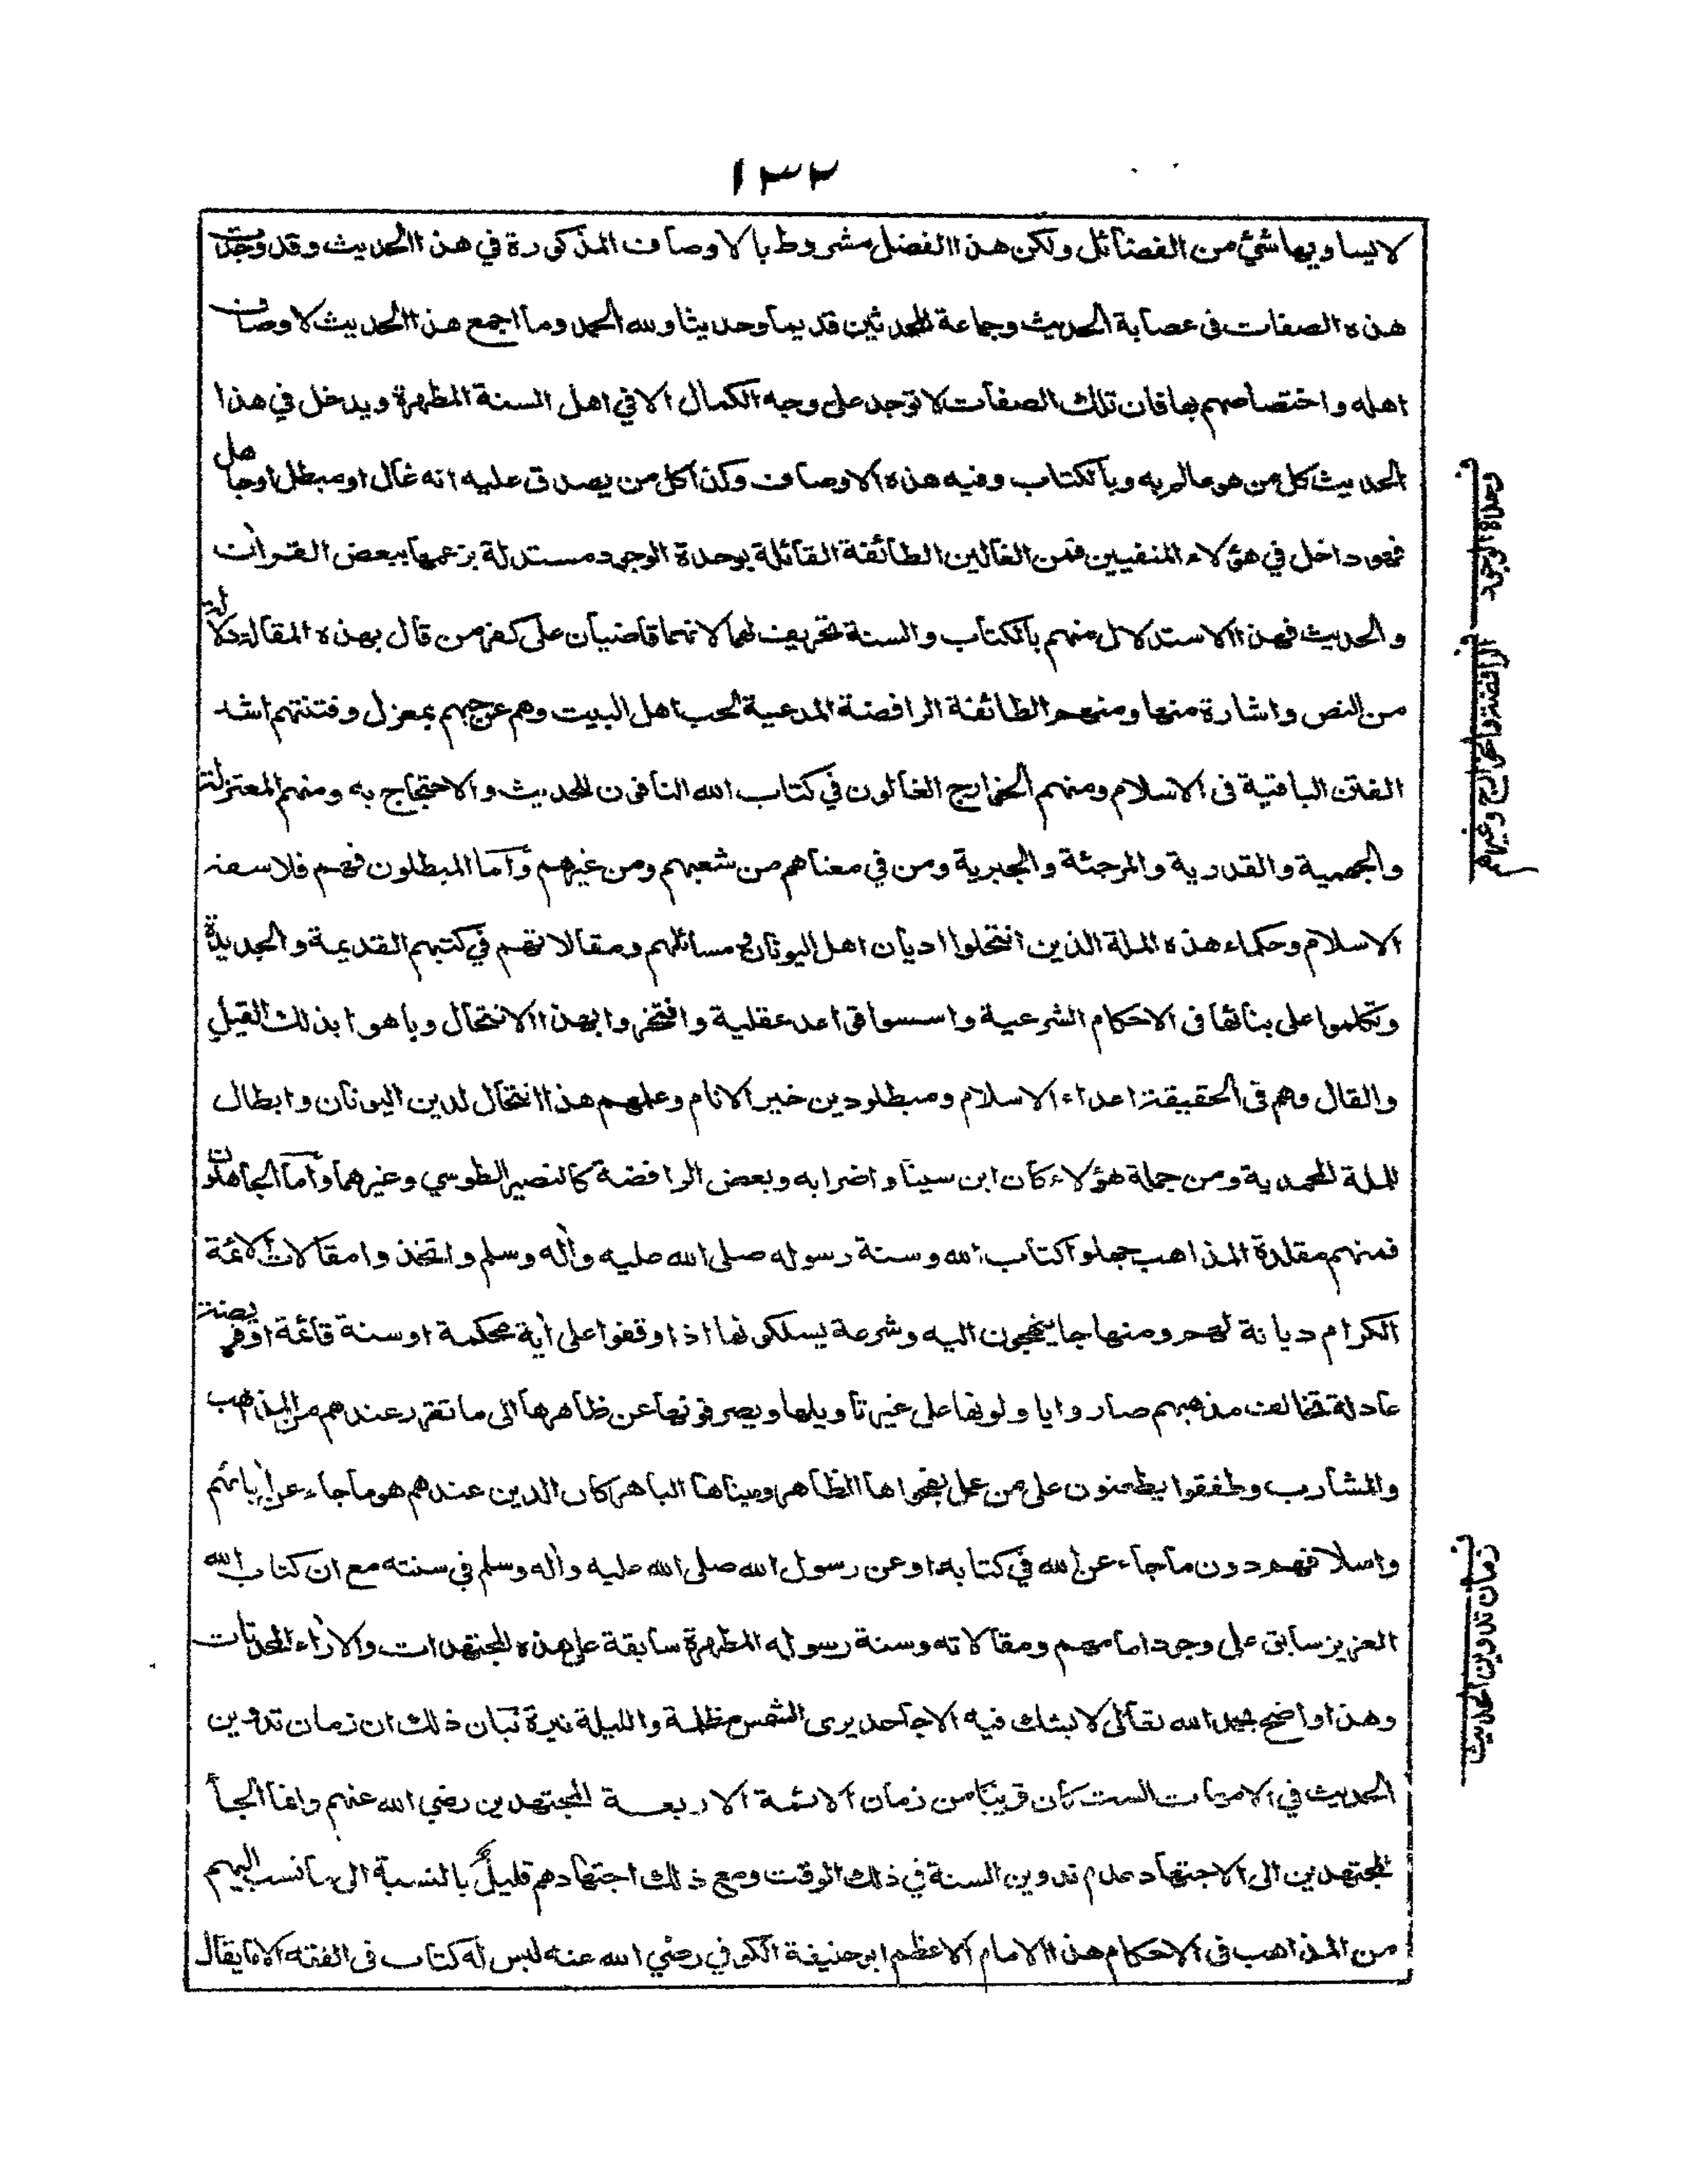 ١٣٢
لايساويها شئ من الفضائل ولكن هذا الفضل مشروط بالاوصاف المذكورة في هذا الحديث وقد وجدت
هذه الصفات فى عصابة الحديث وجماعة المحدثين قديما وحديثا ولله الحمد وما اجمع هذا الحديث لاوصاف
اهله واختصاصهم بها فان تلك الصفات لا توجد على وجه الكمال الا في اهل السنة المطهرة ويدخل في هذا
الحديث كل من هو عالم به وبالكتاب وفيه هذه الاوصاف وكذا كل من يصدق عليه انه غال او مبطل او جاهل
فهو داخل في هؤلاء المنفيين فمن الغالين الطائفة القائلة بوحدة الوجود مستدلة بزعمها ببعض القرأن
والحديث فهذا الاستدلال منهم بالكتاب والسنة تحريف لهما لانهما قاضيان على كفر من قال بهذه المقالة دلالة
من النص واشارة منها ومنهم الطائفة الرافضة المدعية لحب اهل البيت وهم عن حبهم بمعزل وفتنتهم اشد
الفتن الباقية فى الاسلام ومنهم الخوارج الغالون في كتاب الله النافون للحديث والاحتجاج به ومنهم المعتزلة
والجهمية والقدرية والمرجئة والجبرية ومن في معناهم من شعبهم ومن غيرهم وأما المبطلون فهم فلاسفة
الاسلام وحكماء هذه الملة الذين انتحلوا اديان اهل اليونان في مسائلهم ومقالاتهم في كتبهم القديمة والجديدة
وتكلموا على بنائها فى الاحكام الشرعية واسسوا قواعد عقلية وافتخروا بهذا الانتحال وباهوا بذلك القيل
والقال وهم فى الحقيقة اعداء الاسلام ومبطلو دين خير الانام وعلمهم هذا انتحال لدين اليونان وابطال
للملة المحمدية ومن جملة هؤلاء كان ابن سينا واضرابه وبعض الرافضة كالنصير الطوسي وغيرهما وأما الجاهلون
فمنهم مقلدة المذاهب جهلوا كتاب الله وسنة رسوله صلى الله عليه وأله وسلم واتخذوا مقالات الائمة
الكرام ديانة لهم ومنهاجا ينهجون اليه وشرعة يسلكونها اذا وقفوا على أية محكمة او سنة قائمة او فريضة
عادلة تخالف مذهبهم صاروا يأولونها على غير تأويلها ويصرفونها عن ظاهرها الى ما تقرر عندهم من المذاهب
والمشارب وطفقوا يطعنون على من عمل بفحواها الظاهر ومبناها الباهر كان الدين عندهم هو ما جاء عن أبائهم
واسلافهم دون ما جاء عن الله في كتابه او عن رسول الله صلى الله عليه وأله وسلم في سنته مع ان كتاب الله
العزيز سابق على وجود امامهم ومقالاته وسنة رسوله المطهرة سابقة على هذه المجتهدات والاراء المحدثات
وهذا واضح بحمد الله تعالى لا يشك فيه الا جاحد يرى الشمس مظلمة والليلة نيرة بيان ذلك ان زمان تدوين
الحديث في الامهات الست كان قريبا من زمان الائمة الاربعة المجتهدين رضي الله عنهم وانما الجأ
المجتهدين الى الاجتهاد عدم تدوين السنة في ذلك الوقت ومع ذلك اجتهادهم قليل بالنسبة الى ما نسب اليهم
من المذاهب فى الاحكام هذا الامام الاعظم ابو حنيفة الكوفي رضي الله عنه ليس له كتاب فى الفقه الا ما يقال
وحدة الوجود
الرافضة والخوارج وغيرهم
زمان تدوين الحديث